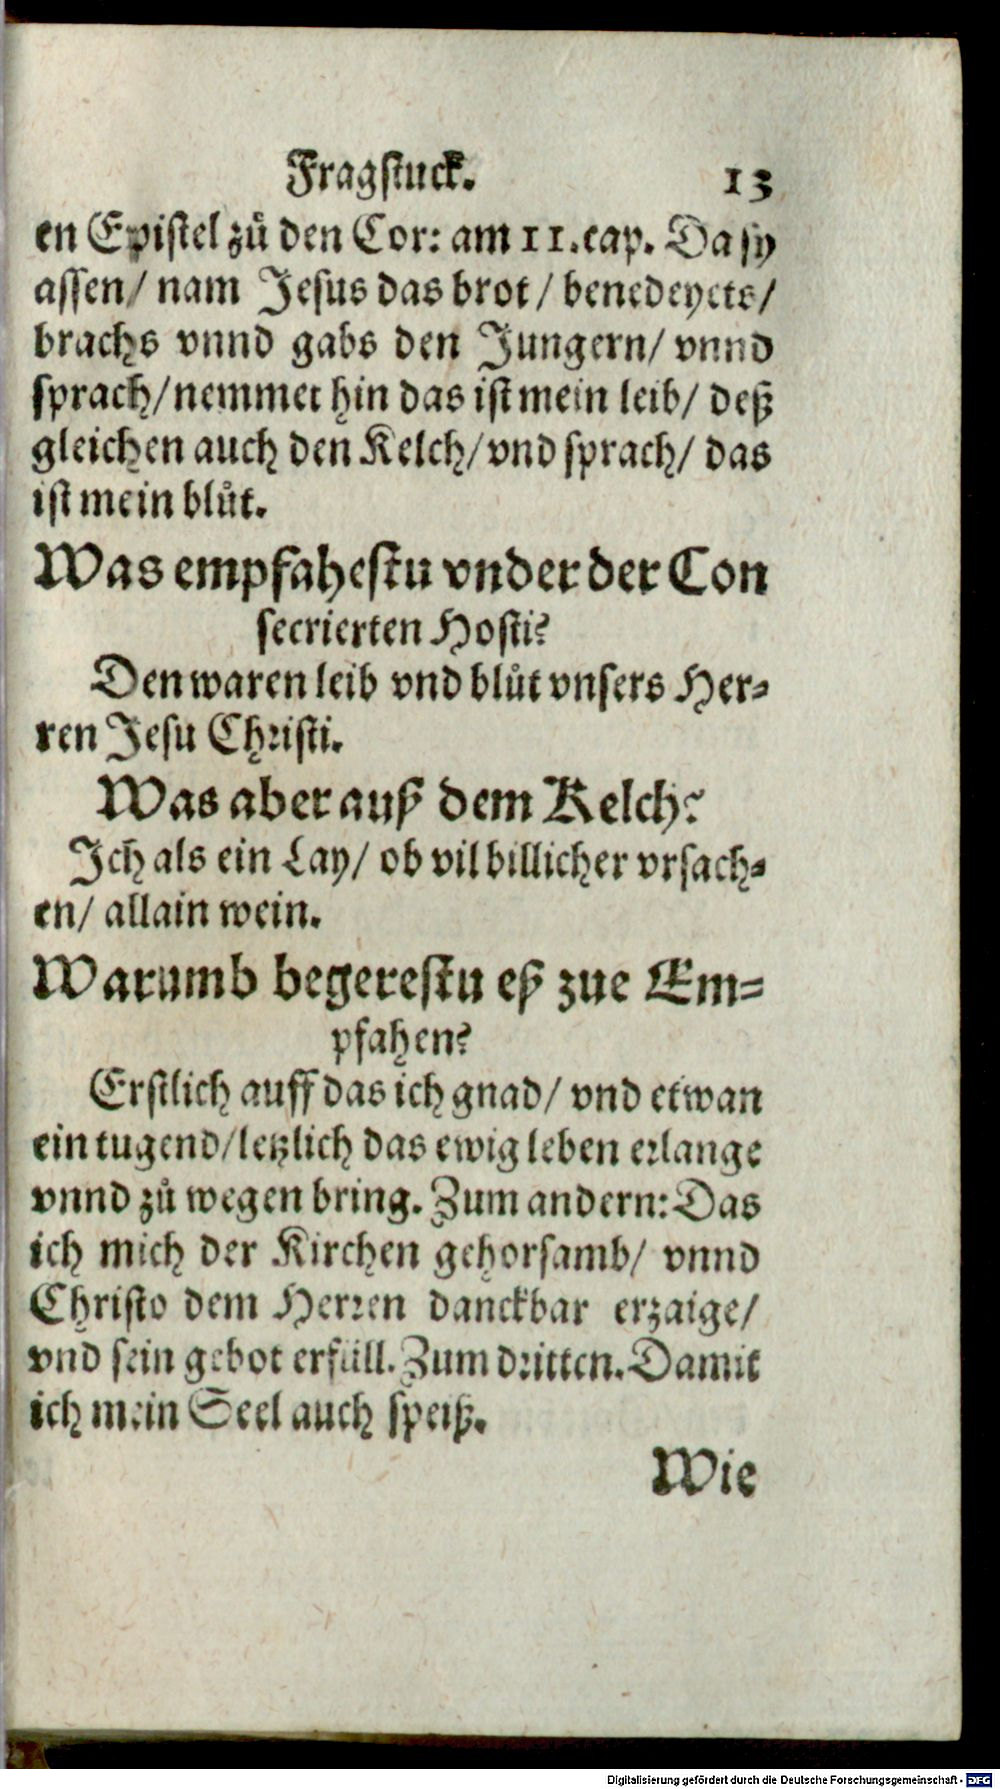 Fragstuck. 13
en Epistel zů den Cor: am 11. cap. Da sy
assen/ nam Jesus das brot/ benedeyets/
brachs vnnd gabs den Jungern/ vnnd
sprach/ nemmet hin das ist mein leib/ deß
gleichen auch den Kelch/ vnd sprach/ das
ist mein blůt.
Was empfahestu vnder der Con
secrierten Hosti?
Den waren leib vnd blůt vnsers Her-
ren Jesu Christi.
Was aber auß dem Kelch?
Ich als ein Lay/ ob vil billicher vrsach-
en/ allain wein.
Warumb begerestu eß zue Em-
pfahen?
Erstlich auff das ich gnad/ vnd etwan
ein tugend/ letzlich das ewig leben erlange
vnnd zů wegen bring. Zum andern: Das
ich mich der Kirchen gehorsamb/ vnnd
Christo dem Herren danckbar erzaige/
vnd sein gebot erfüll. Zum dritten. Damit
ich mein Seel auch speiß.
Wie
Digitalisierung gefördert durch die Deutsche Forschungsgemeinschaft - DFG